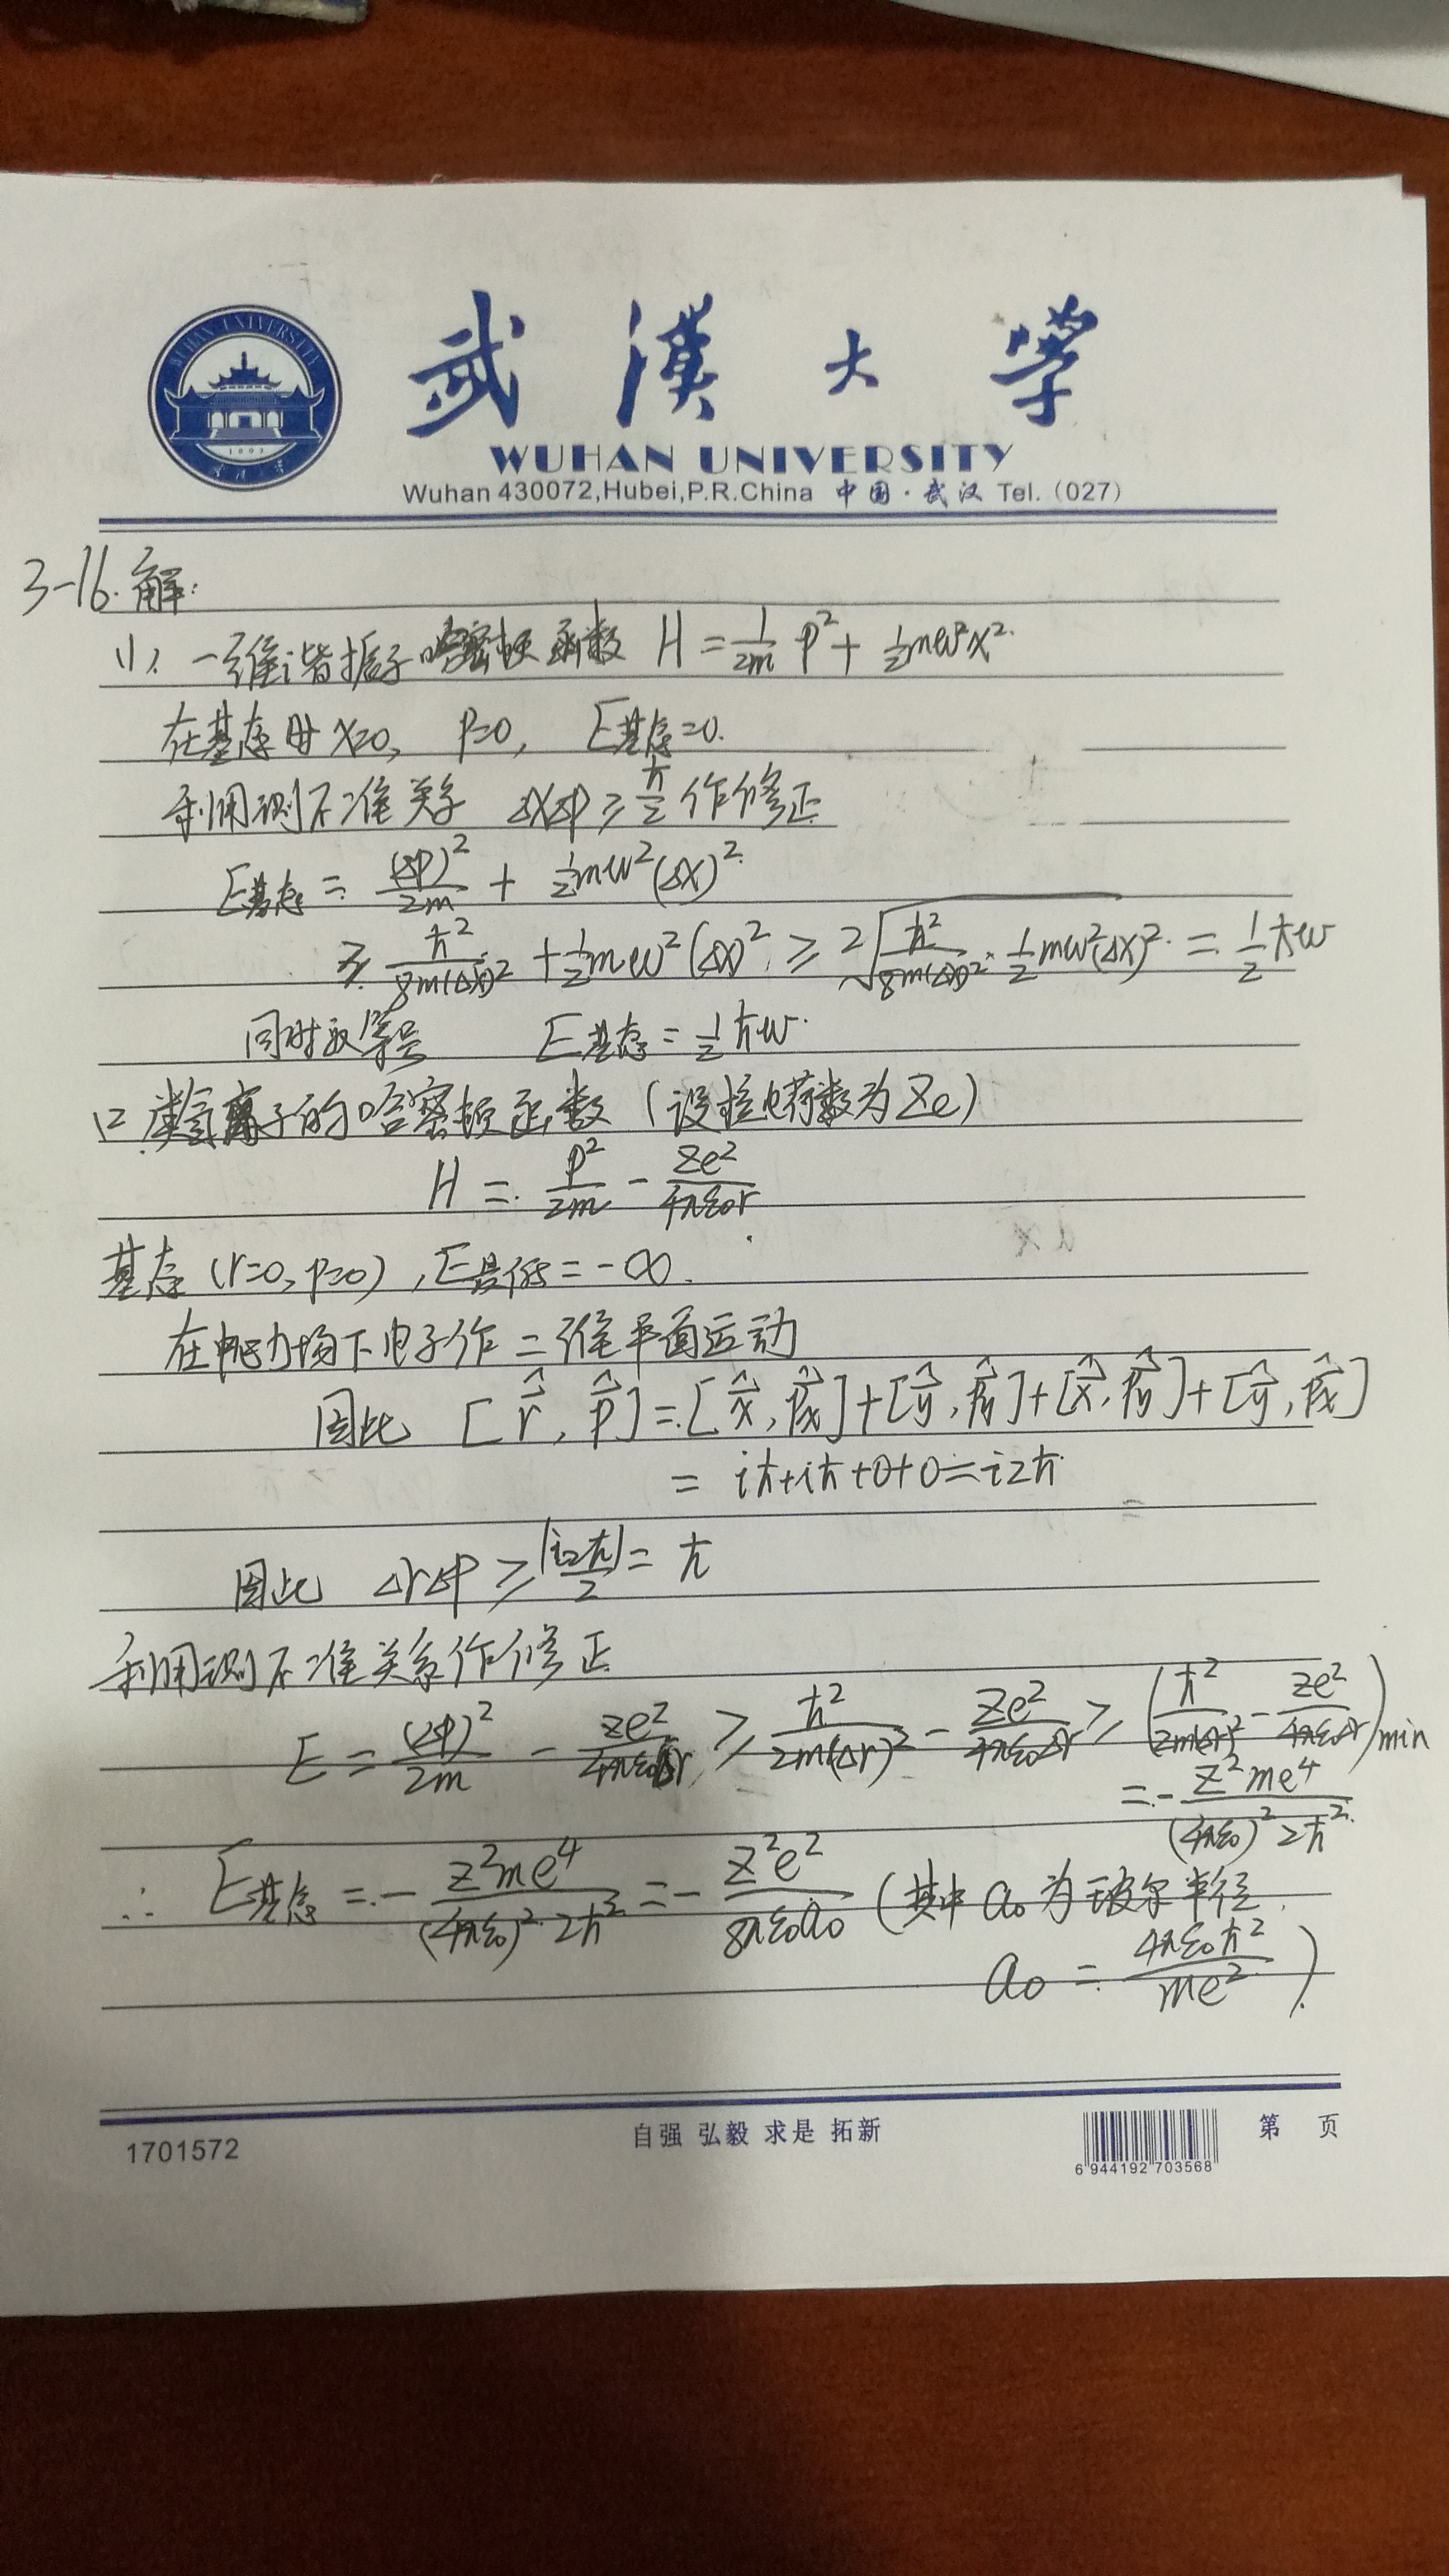 WUHAN UNIVERSITY
1893
武漢大學
WUHAN UNIVERSITY
Wuhan 430072,Hubei,P.R.China 中国·武汉 Tel.(027)
3-16.解:
(1). 一维谐振子哈密顿函数 H = \frac{1}{2m} p² + \frac{1}{2}mω²x².
在基态时 x=0, p=0, E基态=0.
利用测不准关系 ΔxΔp ≥ \frac{ħ}{2} 作修正
E基态 = \frac{(Δp)²}{2m} + \frac{1}{2}mω²(Δx)²
≥ \frac{ħ²}{8m(Δx)²} + \frac{1}{2}mω²(Δx)² ≥ 2\sqrt{\frac{ħ²}{8m(Δx)²}·\frac{1}{2}mω²(Δx)²} = \frac{1}{2}ħω
同时取等号 E基态 = \frac{1}{2}ħω.
(2 类氢离子的哈密顿函数 (设核电荷数为Ze)
H = \frac{p²}{2m} - \frac{Ze²}{4πε₀r}
基态 (r=0, p=0), E最低 = -∞.
在中心力场下电子作二维平面运动
因此 [\hat{\vec{r}}, \hat{\vec{p}}] = [\hat{\vec{x}}, \hat{\vec{p_x}}] + [\hat{\vec{y}}, \hat{\vec{p_y}}] + [\hat{\vec{x}}, \hat{\vec{p_y}}] + [\hat{\vec{y}}, \hat{\vec{p_x}}]
= iħ+iħ+0+0 = i2ħ
因此 ΔrΔp ≥ \frac{|i2ħ|}{2} = ħ
利用测不准关系作修正
E = \frac{(Δp)²}{2m} - \frac{Ze²}{4πε₀Δr} ≥ \frac{ħ²}{2m(Δr)²} - \frac{Ze²}{4πε₀Δr} ≥ (\frac{ħ²}{2m(Δr)²} - \frac{Ze²}{4πε₀Δr})min
= -\frac{Z²me⁴}{(4πε₀)²2ħ²}
∴ E基态 = -\frac{Z²me⁴}{(4πε₀)²·2ħ²} = -\frac{Z²e²}{8πε₀a₀} (其中 a₀ 为玻尔半径,
a₀ = \frac{4πε₀ħ²}{me²}).
1701572
自强 弘毅 求是 拓新
6 944192 703568
第 页